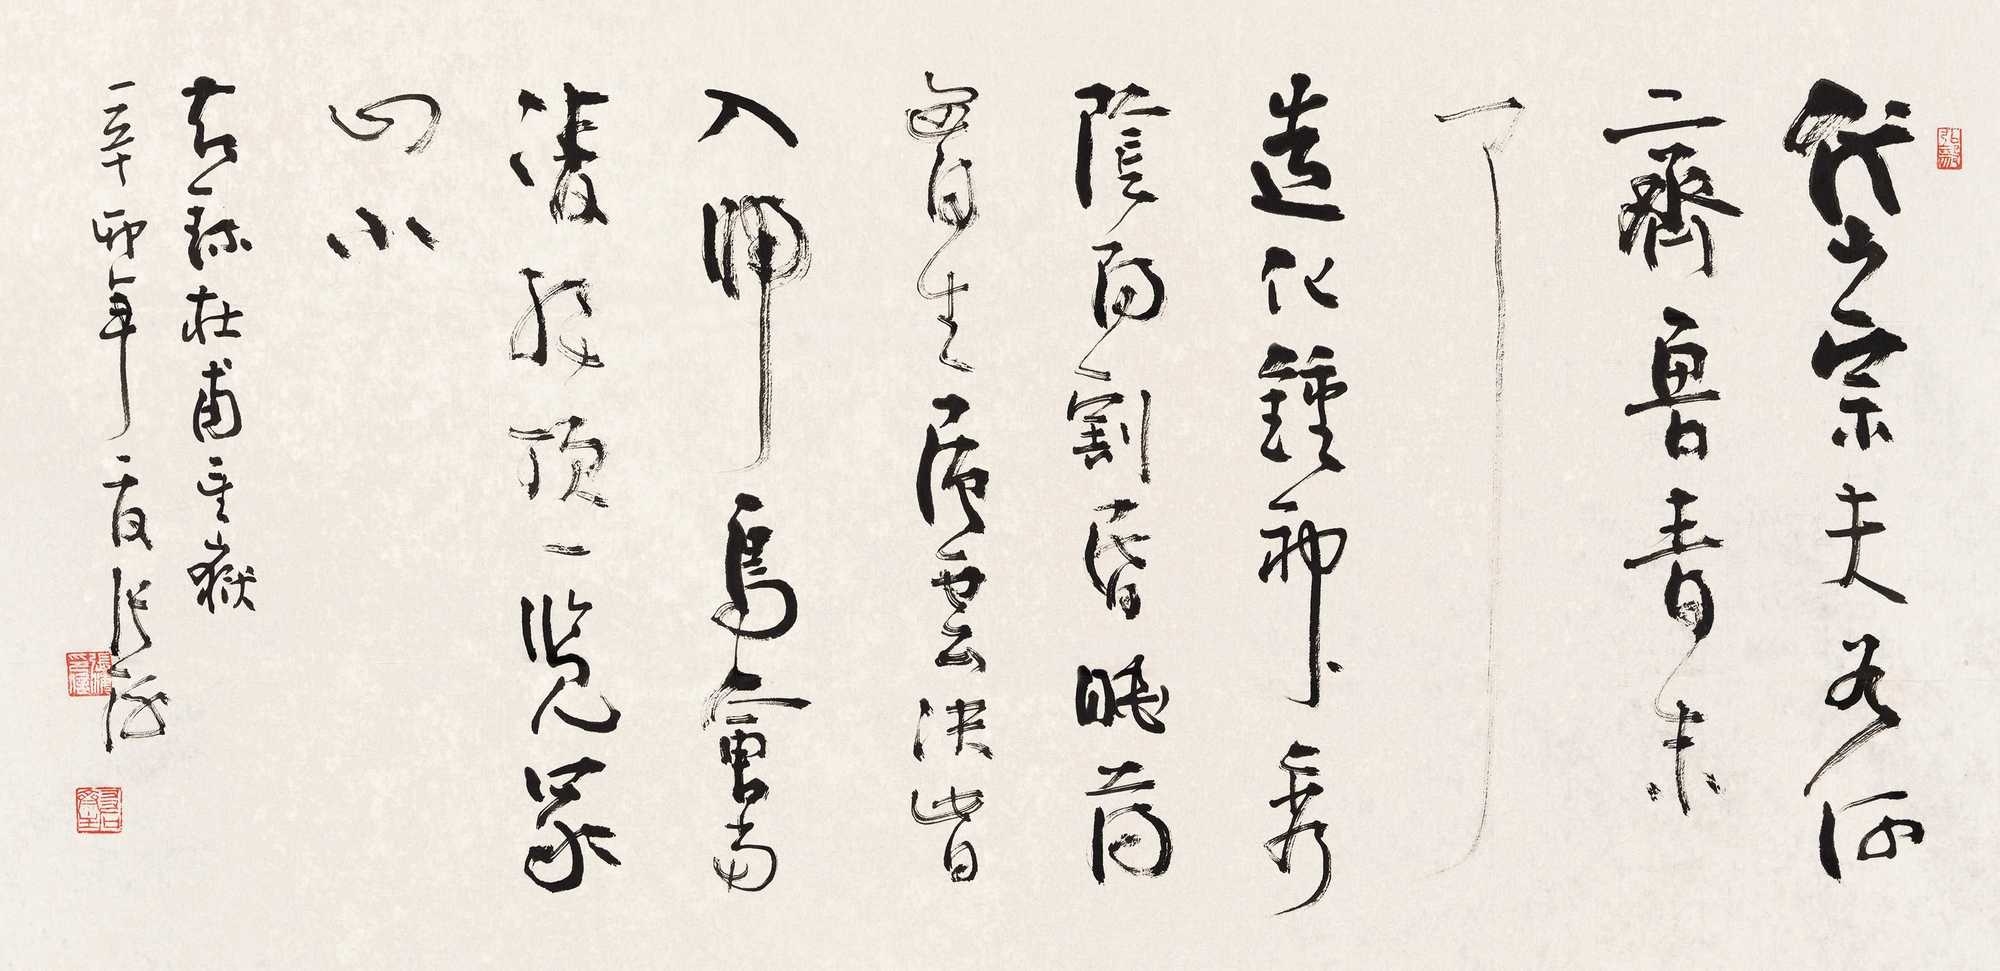 岱宗夫若何
齊魯青未
了
造化鍾神秀
陰陽割昏曉蕩
胸生層雲決眥
入歸鳥會當
凌絕頂一覽眾
山小
右錄杜甫望嶽
辛卯年夏張海